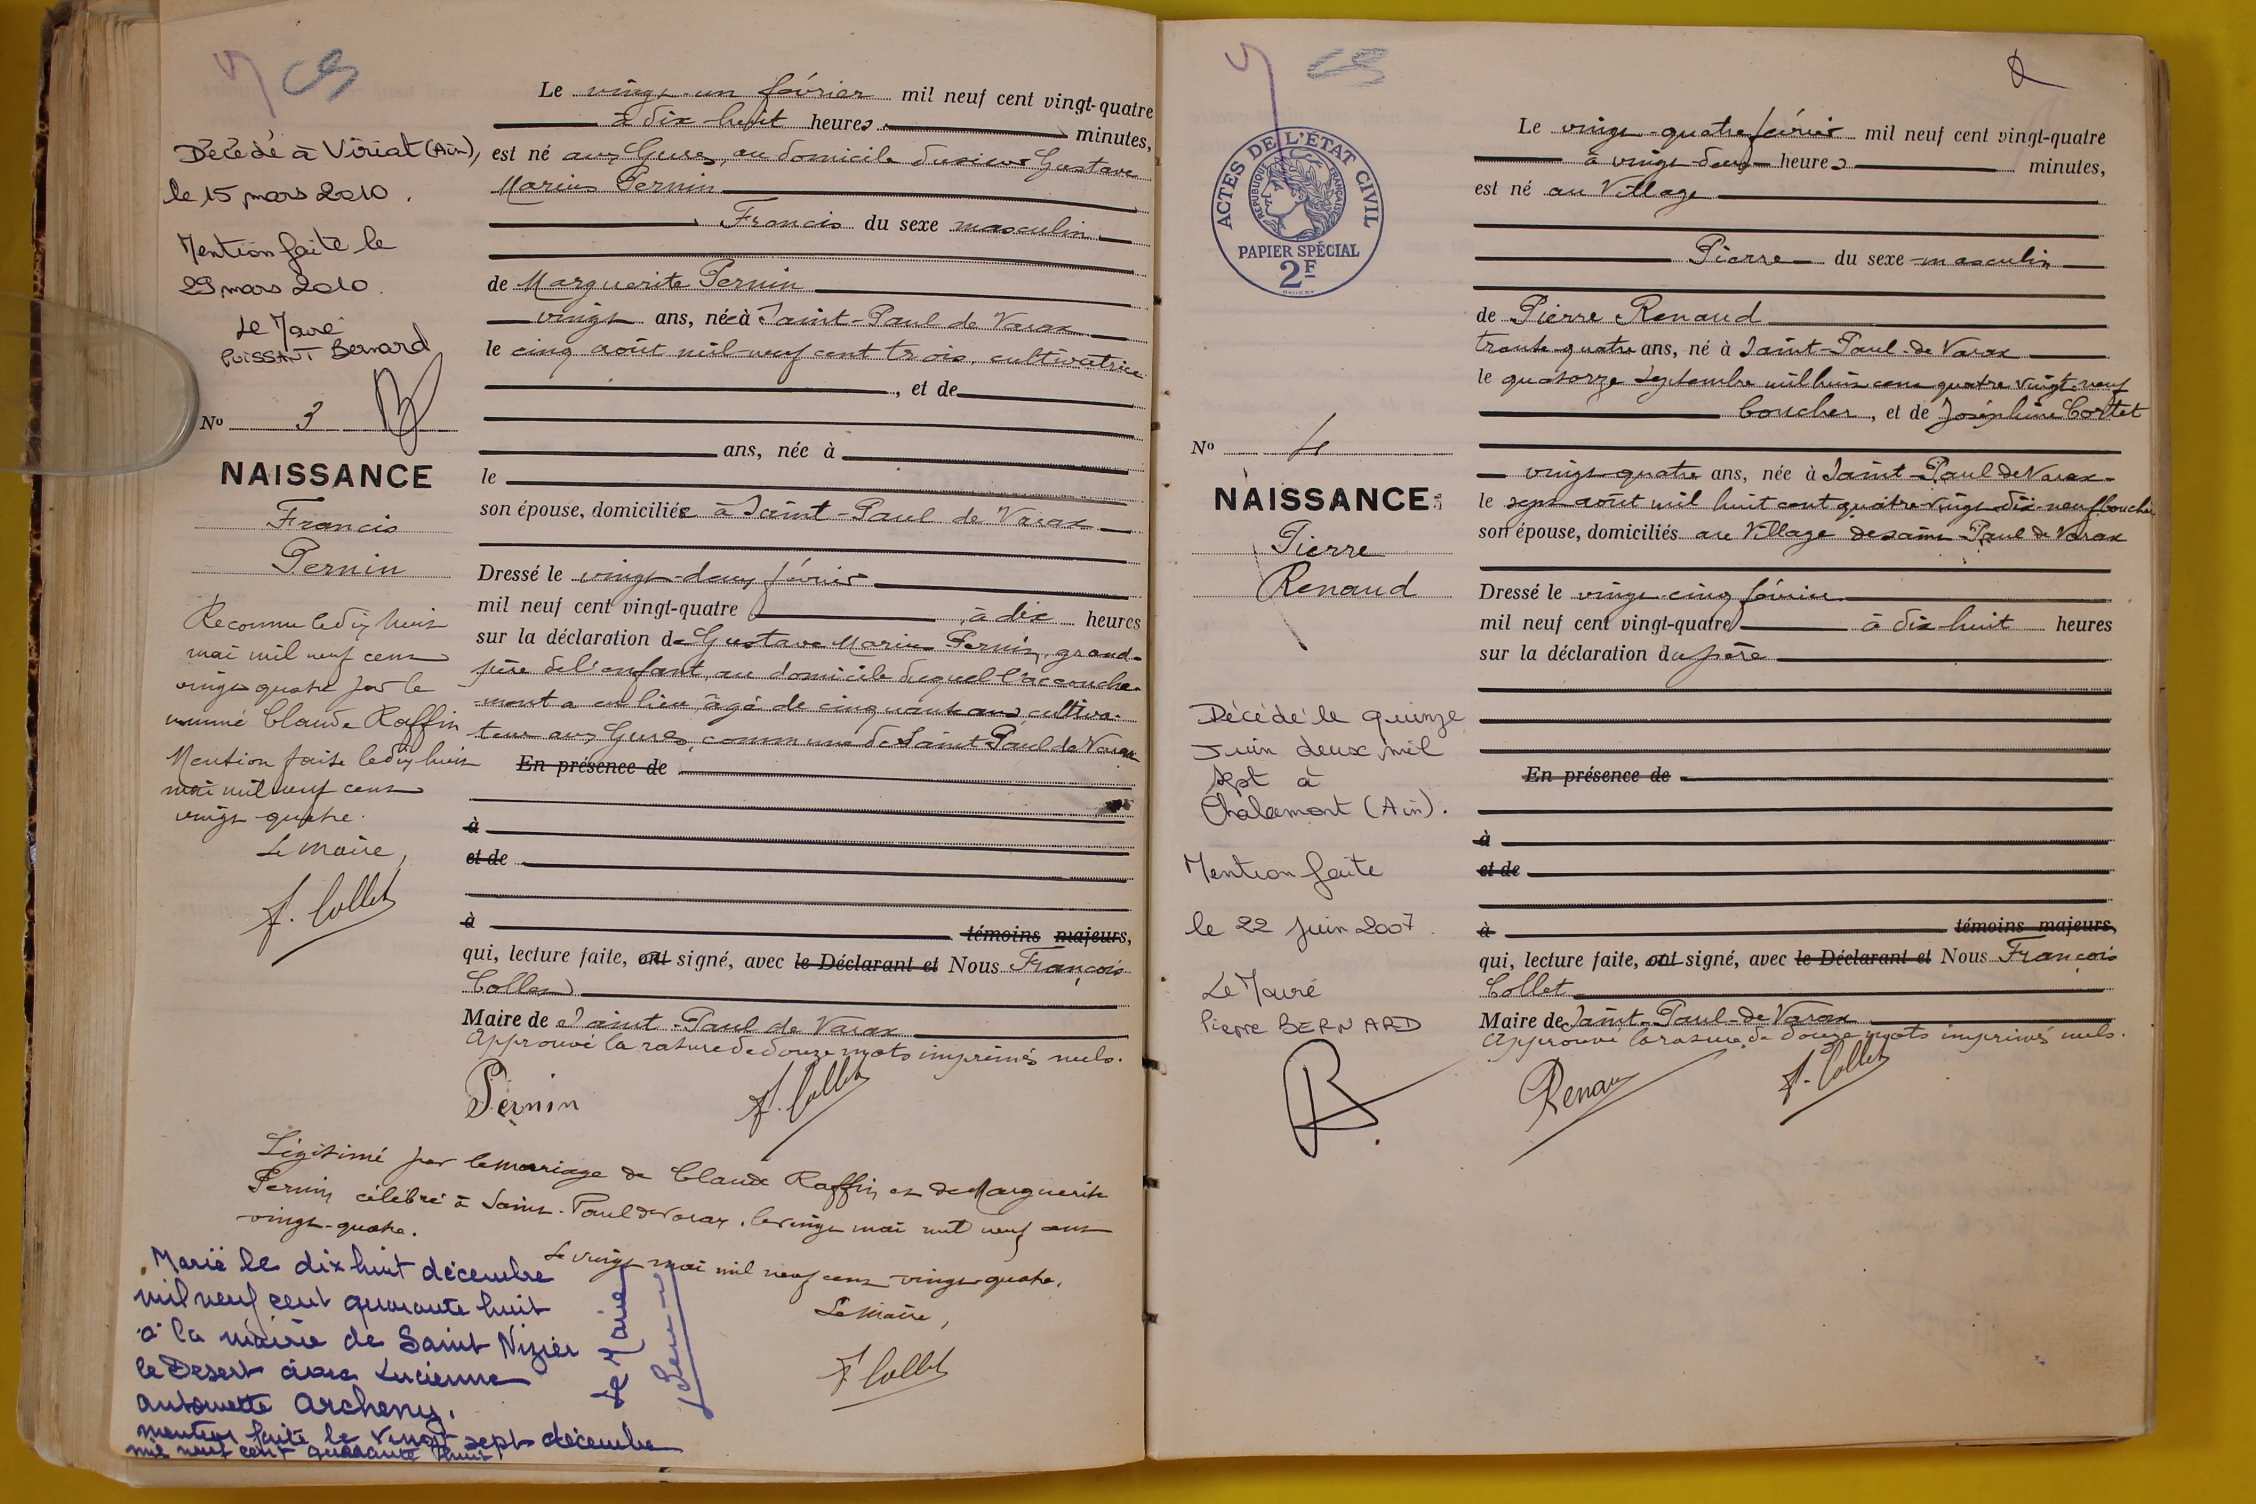 Le vingt-un février mil neuf cent vingt-quatre
à dix huit heures minutes,
est né aux Gures, au domicile du sieur Gustave
Marius Pernin
Francis du sexe masculin
de Marguerite Pernin
vingt ans, née à Saint-Paul de Varax
le cinq août mil neuf cent trois, cultivatrice
, et de
ans, née à
le
son épouse, domiciliée à Saint-Paul de Varax
Dressé le vingt-deux février
mil neuf cent vingt-quatre, à dix heures
sur la déclaration de Gustave Marius Pernin, grand-
père de l'enfant, au domicile duquel l'accouche-
ment a eu lieu, âgé de cinquante ans, cultiva-
teur aux Gures, commune de Saint Paul de Varax
En présence de
à
et de
à témoins majeurs,
qui, lecture faite, ont signé, avec le Déclarant et Nous François
Collet
Maire de Saint-Paul de Varax
Approuvé la rature de douze mots imprimés nuls.
Pernin F. Collet
Décédé à Viriat (Ain),
le 15 mars 2010.
Mention faite le
29 mars 2010.
Le Maire
PUISSANT Bernard
No 3
NAISSANCE
Francis
Pernin
Reconnu le dix huit
mai mil neuf cent
vingt quatre par le
nommé Claude Raffin
Mention faite le dix huit
mai mil neuf cent
vingt-quatre.
Le Maire,
F. Collet
Légitimé par le mariage de Claude Raffin et de Marguerite
Pernin célébré à Saint-Paul de Varax, le vingt mai mil neuf cent
vingt-quatre.
Le vingt mai mil neuf cent vingt-quatre,
Le Maire,
F Collet
Marié le dix huit décembre
mil neuf cent quarante huit
à la mairie de Saint Nizier
le Desert avec Lucienne
antoinette Archeny.
mention faite le vingt sept décembre
mil neuf cent quarante huit
Le Maire
ACTES DE L'ÉTAT CIVIL
RÉPUBLIQUE FRANÇAISE
PAPIER SPÉCIAL
2F
Le vingt-quatre février mil neuf cent vingt-quatre
à vingt-deux heures minutes,
est né au Village
Pierre du sexe masculin
de Pierre Renaud
trente-quatre ans, né à Saint-Paul-de Varax
le quatorze septembre mil huit cent quatre vingt neuf
boucher, et de Joséphine Cortet
vingt-quatre ans, née à Saint-Paul de Varax
le sept août mil huit cent quatre vingt dix-neuf bouchère
son épouse, domiciliés au Village de Saint-Paul de Varax
Dressé le vingt-cinq février
mil neuf cent vingt-quatre à dix huit heures
sur la déclaration du père
En présence de
à
et de
à témoins majeurs,
qui, lecture faite, ont signé, avec le Déclarant et Nous François
Collet
Maire de Saint-Paul-de Varax
Approuvé la rature de douze mots imprimés nuls.
Renaud F. Collet
No 4
NAISSANCE
Pierre
Renaud
Décédé le quinze
Juin deux mil
sept à
Chalamont (Ain).
Mention faite
le 22 Juin 2007.
Le Maire
Pierre BERNARD